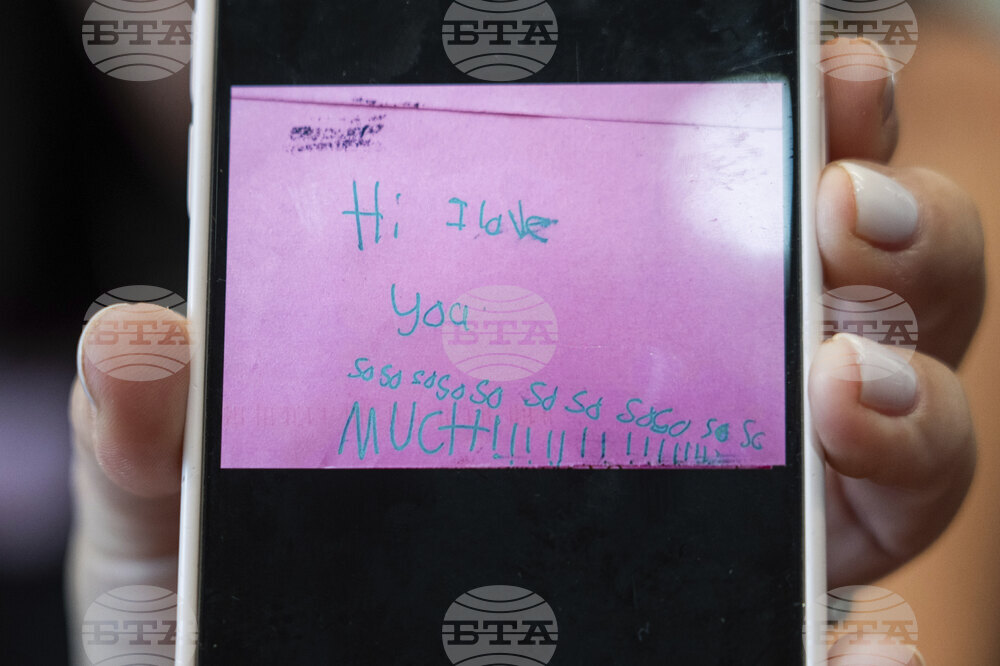 БТА БТА БТА
Hi I love
you
БТА БТА БТА
so so so so so so so so so so so
MUCH!!!!!!!!!!!!!!!!
БТА БТА БТА